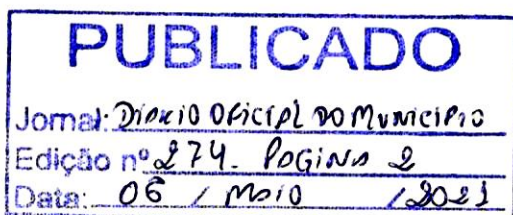 PUBLICADO
Jornal: Diário Oficial do Município
Edição nº 274. Pagina 2
Data: 06 / maio /2021